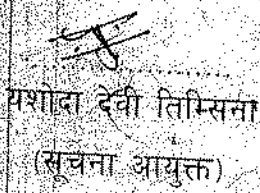 यशोदा देवी तिम्सिना
(सूचना आयुक्त)